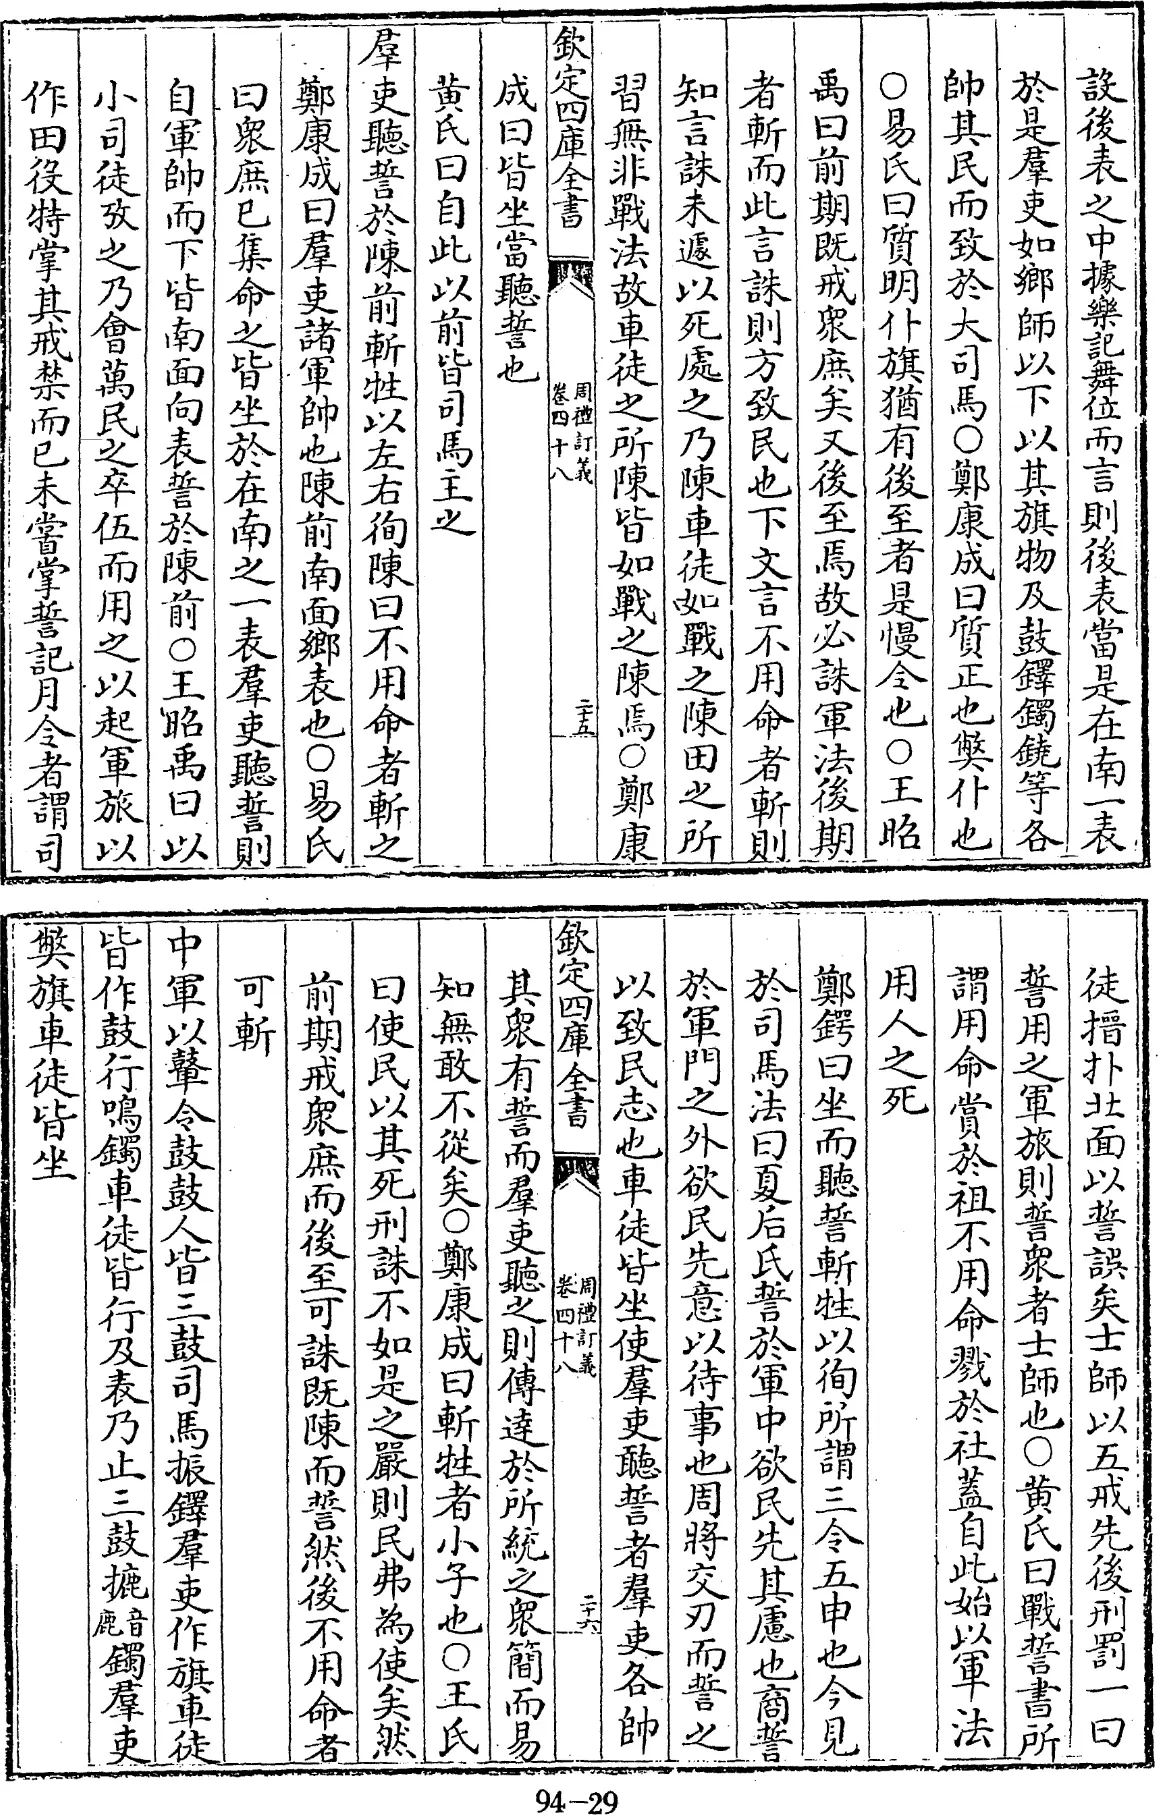 設後表之中據樂記舞位而言則後表當是在南一表
於是羣吏如鄉師以下以其旗物及鼓鐸鐲鐃等各
帥其民而致於大司馬○鄭康成曰質正也弊仆也
○易氏曰質明仆旗猶有後至者是慢令也○王昭
禹曰前期既戒衆庶矣又後至焉故必誅軍法後期
者斬而此言誅則方致民也下文言不用命者斬則
知言誅未遽以死處之乃陳車徒如戰之陳田之所
習無非戰法故車徒之所陳皆如戰之陳焉○鄭康
欽定四庫全書
周禮訂義
卷四十八
二十五
成曰皆坐當聽誓也
黄氏曰自此以前皆司馬主之
羣吏聽誓於陳前斬牲以左右徇陳曰不用命者斬之
鄭康成曰羣吏諸軍帥也陳前南面鄉表也○易氏
曰衆庶已集命之皆坐於在南之一表羣吏聽誓則
自軍帥而下皆南面向表誓於陳前○王昭禹曰以
小司徒攷之乃會萬民之卒伍而用之以起軍旅以
作田役特掌其戒禁而已未嘗掌誓記月令者謂司
徒搢扑北面以誓誤矣士師以五戒先後刑罰一曰
誓用之軍旅則誓衆者士師也○黄氏曰戰誓書所
謂用命賞於祖不用命戮於社蓋自此始以軍法
用人之死
鄭鍔曰坐而聽誓斬牲以徇所謂三令五申也今見
於司馬法曰夏后氏誓於軍中欲民先其慮也商誓
於軍門之外欲民先意以待事也周將交刃而誓之
以致民志也車徒皆坐使羣吏聽誓者羣吏各帥
欽定四庫全書
周禮訂義
卷四十八
二十六
其衆有誓而羣吏聽之則傳達於所統之衆簡而易
知無敢不從矣○鄭康成曰斬牲者小子也○王氏
曰使民以其死刑誅不如是之嚴則民弗為使矣然
前期戒衆庶而後至可誅既陳而誓然後不用命者
可斬
中軍以鼙令鼓鼓人皆三鼓司馬振鐸羣吏作旗車徒
皆作鼓行鳴鐲車徒皆行及表乃止三鼓摝音鹿鐲羣吏
弊旗車徒皆坐
94-29